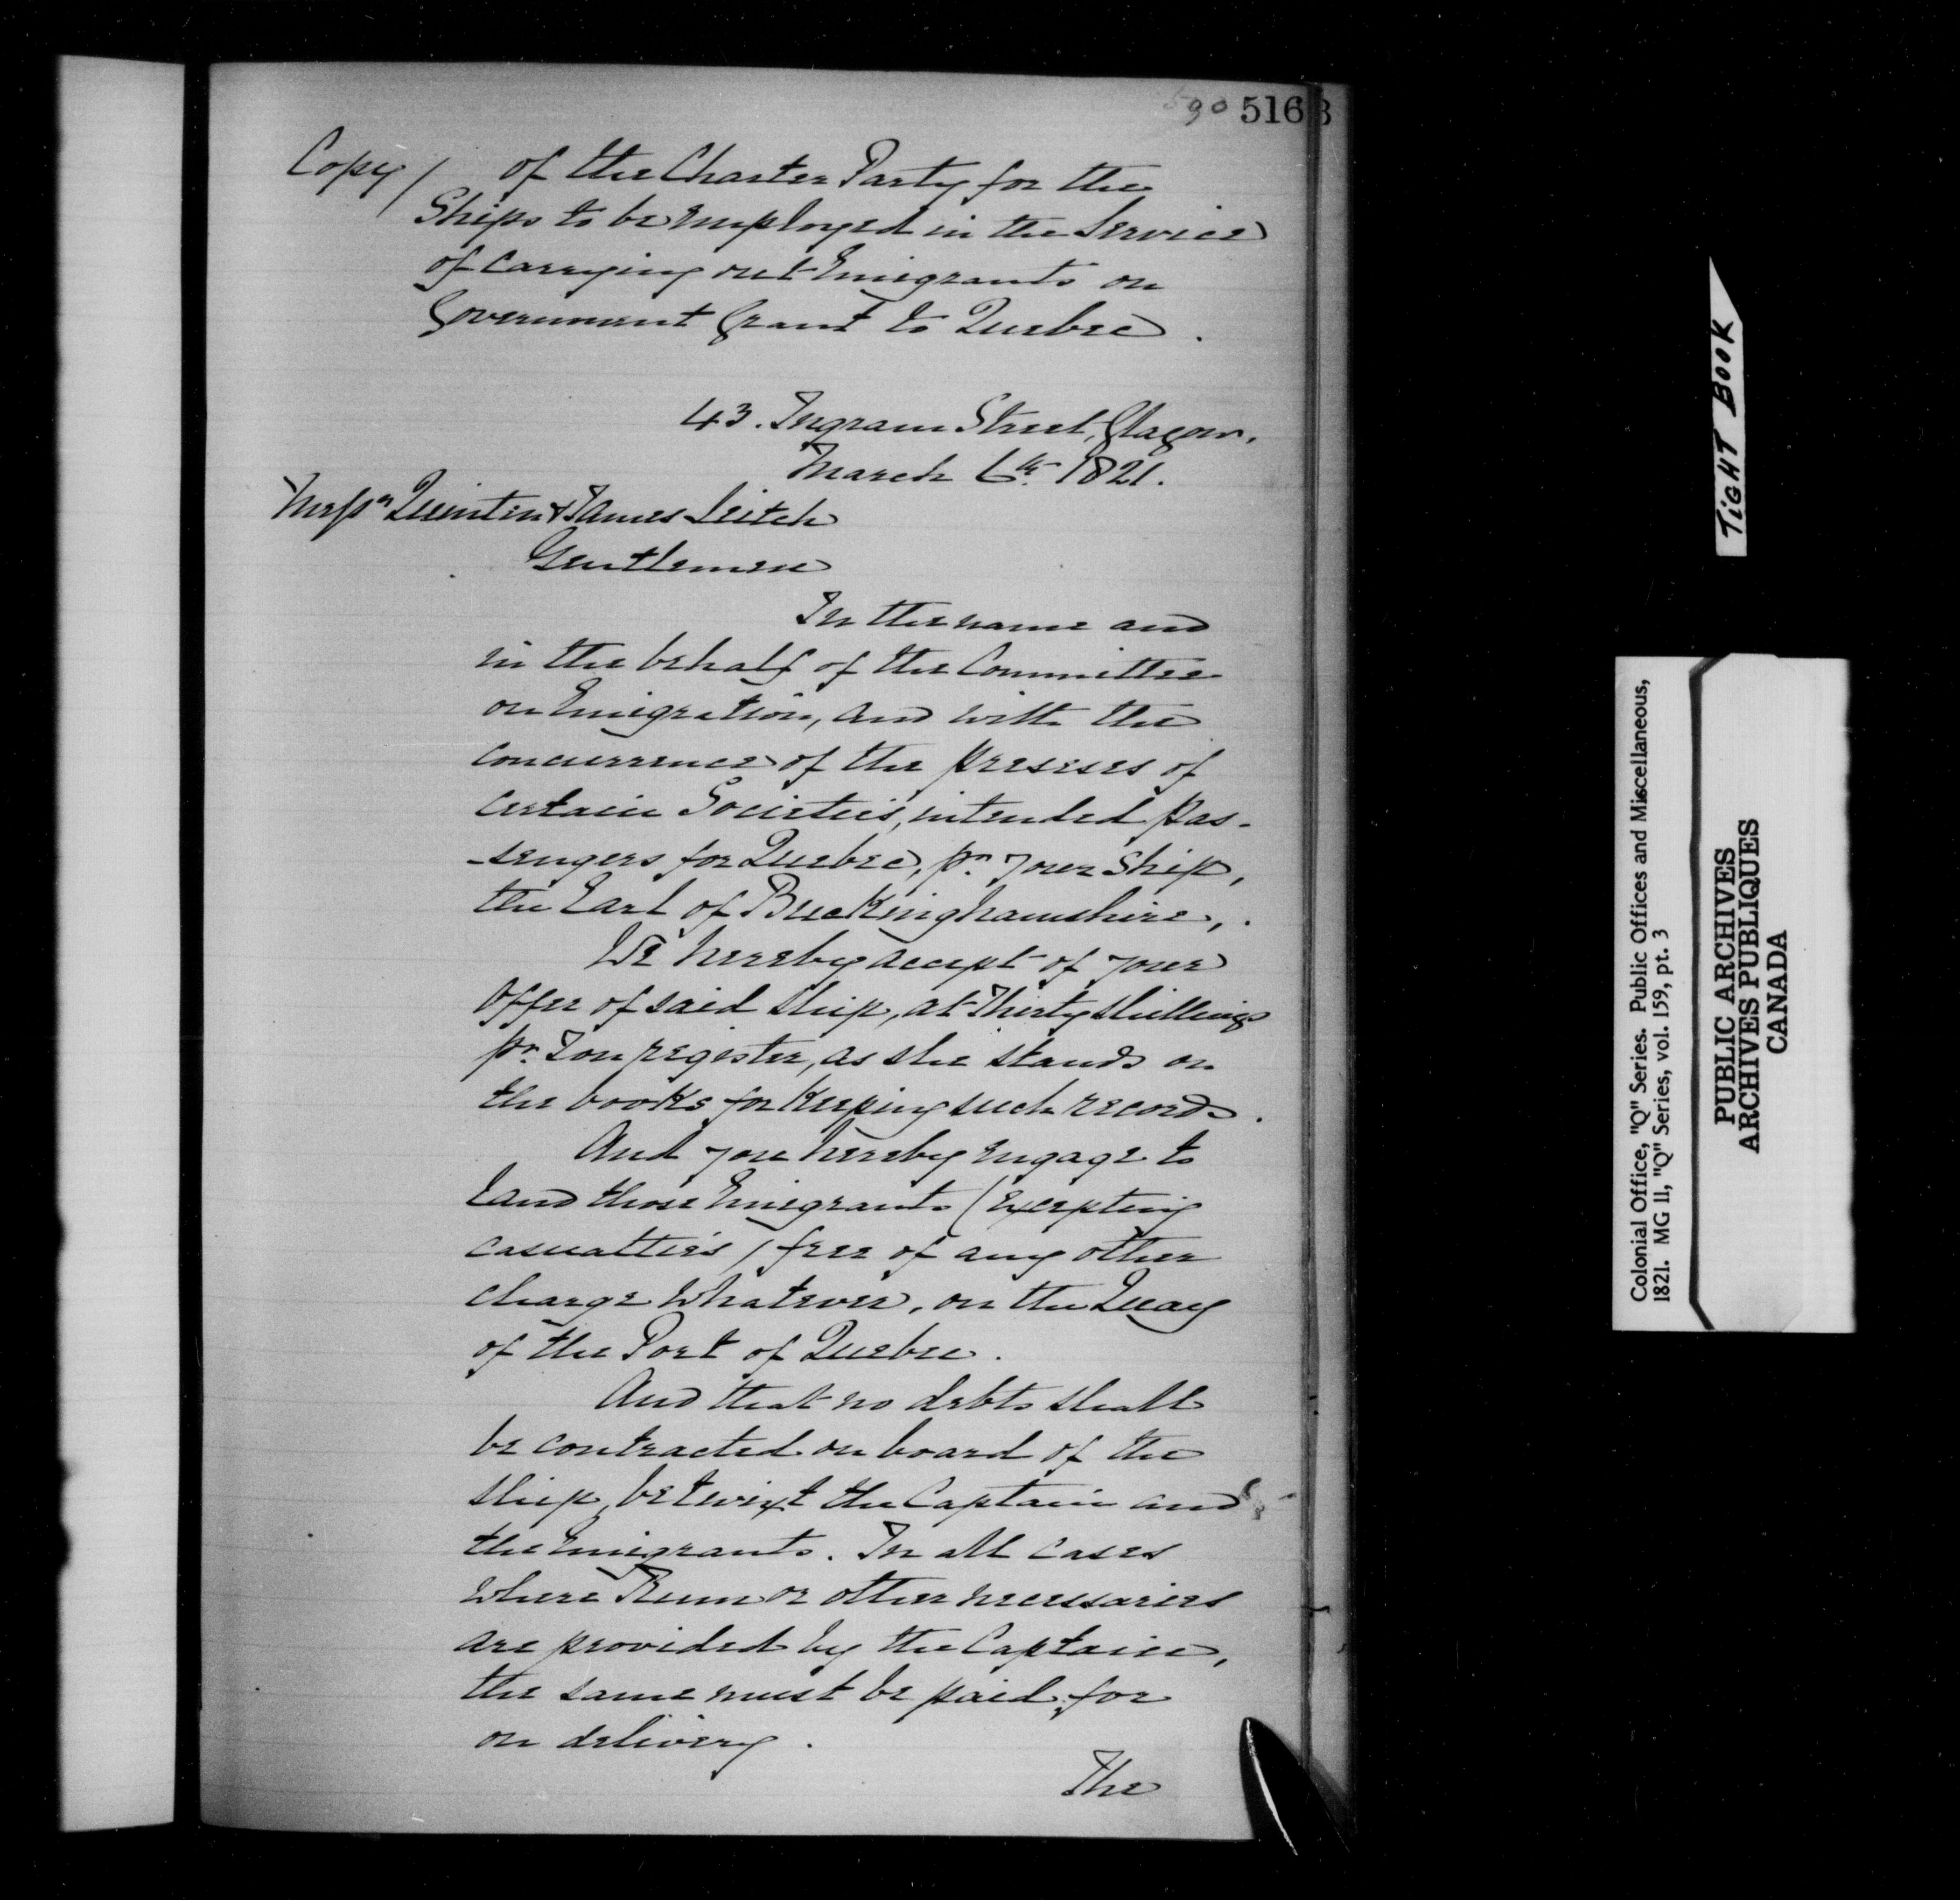 590 516 3
Copy / of the Charter Party for the
Ships to be employed in the Service
of carrying out Emigrants on
Government Grant to Quebec.
43. Ingram Street, Glagow.
March 6th 1821.
Messrs Quintin & James Leitch
Gentlemen
In the name and
in the behalf of the Committee
on Emigration, and with the
concurrence of the preseses of
certain Societies, intended pas-
-sengers for Quebec, pr. your Ship,
the Earl of Buckinghamshire,.
We hereby accept of your
offer of said ship, at Thirty shillings
pr. Ton register, as she stands on
the books for keeping such records.
And you hereby engage to
land those Emigrants (excepting
casualties) free of any other
charge whatever, on the Quay
of the Port of Quebec.
And that no debts shall
be contracted on board of the
ship, betwixt the Captain and
the Emigrants. In all cases
where Rum or other necessaries
are provided by the Captain,
the same must be paid for
on delivery.
The
TIGHT BOOK
Colonial Office, "Q" Series. Public Offices and Miscellaneous,
1821. MG 11, "Q" Series, vol. 159, pt. 3
PUBLIC ARCHIVES
ARCHIVES PUBLIQUES
CANADA